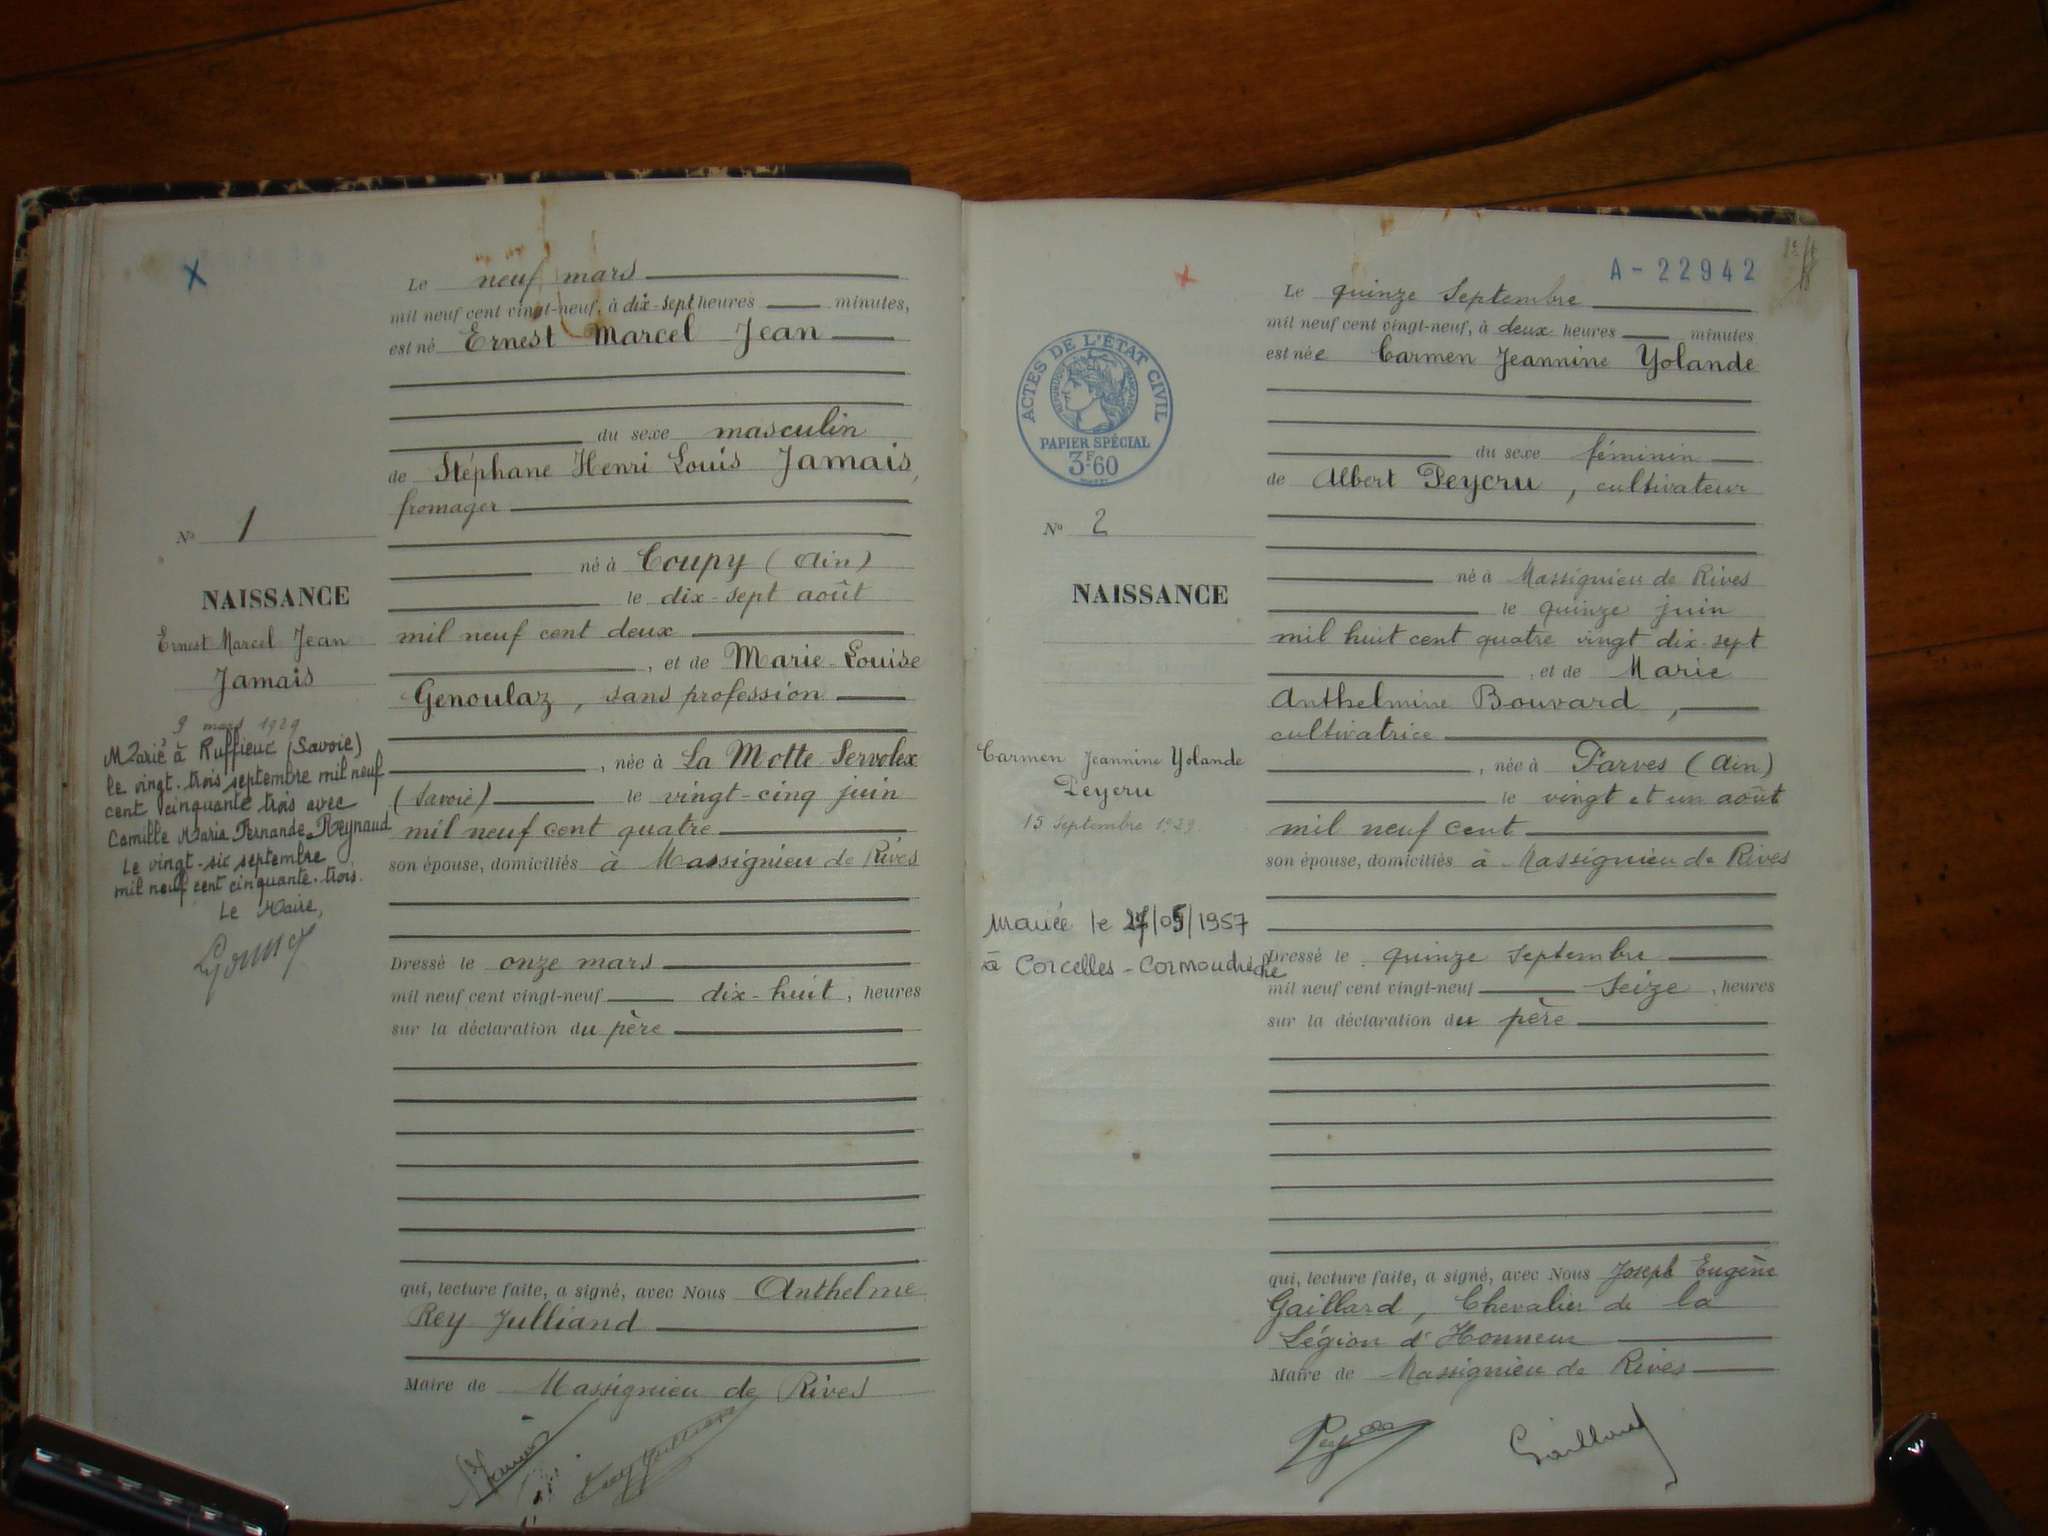 Le neuf mars
mil neuf cent vingt-neuf, à dix-sept heures minutes,
est né Ernest Marcel Jean
du sexe masculin
de Stéphane Henri Louis Jamais,
fromager
né à Coupy (Ain)
le dix-sept août
mil neuf cent deux
, et de Marie-Louise
Genoulaz, sans profession
, née à La Motte Servolex
(Savoie) le vingt-cinq juin
mil neuf cent quatre
son épouse, domiciliés à Massignieu de Rives
Dressé le onze mars
mil neuf cent vingt-neuf dix-huit, heures
sur la déclaration du père
qui, lecture faite, a signé, avec Nous Anthelme
Rey Julliand
Maire de Massignieu de Rives
No 1
NAISSANCE
Ernest Marcel Jean
Jamais
9 mars 1929
Marié à Ruffieux (Savoie)
le vingt-trois septembre mil neuf
cent cinquante trois avec
Camille Maria Fernande Reynaud
Le vingt-six septembre
mil neuf cent cinquante-trois.
Le Maire,
A-22942
Le quinze Septembre
mil neuf cent vingt-neuf, à deux heures minutes
est née Carmen Jeannine Yolande
du sexe féminin
de Albert Peycru, cultivateur
né à Massignieu de Rives
le quinze juin
mil huit cent quatre vingt dix-sept
, et de Marie
Anthelmine Bouvard,
cultivatrice
, née à Parves (Ain)
le vingt et un août
mil neuf cent
son épouse, domiciliés à Massignieu de Rives
Dressé le quinze septembre
mil neuf cent vingt-neuf Seize, heures
sur la déclaration du père
qui, lecture faite, a signé, avec Nous Joseph Eugène
Gaillard, Chevalier de la
Légion d'Honneur
Maire de Massignieu de Rives
Gaillard
ACTES DE L'ÉTAT CIVIL
RÉPUBLIQUE FRANÇAISE
PAPIER SPÉCIAL
3F.60
No 2
NAISSANCE
Carmen Jeannine Yolande
Peycru
15 Septembre 1929
Mariée le /1957
à Corcelles-Cormondrèche